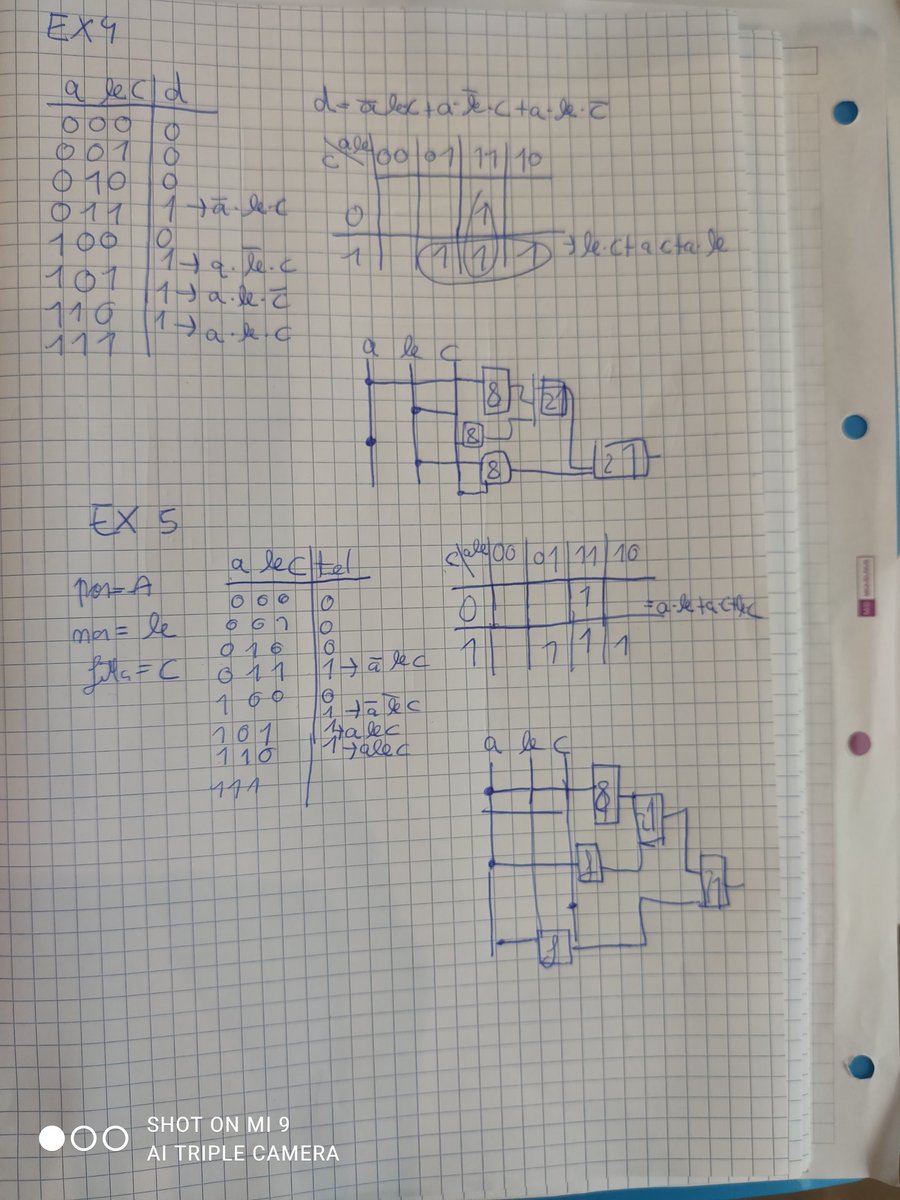 EX4
a b c | d
0 0 0 | 0
0 0 1 | 0
0 1 0 | 0
0 1 1 | 1 → a̅·b·c
1 0 0 | 0
1 0 1 | 1 → a·b̅·c
1 1 0 | 1 → a·b·c̅
1 1 1 | 1 → a·b·c
d = a̅bc + a·b̅·c + a·b·c̅
c\ab | 00 | 01 | 11 | 10
0 | | | 1 |
1 | | 1 | 1 | 1 → b·c+ac+a·b
a b c
&
≥1
&
&
≥1
EX 5
por=A
ma= b
C
a b c | tel
0 0 0 | 0
0 0 1 | 0
0 1 0 | 0
0 1 1 | 1 → a̅bc
1 0 0 | 0
1 0 1 | 1 → a̅b̅c
1 1 0 | 1→abc
1 1 1 | 1→abc
c\ab | 00 | 01 | 11 | 10
0 | | | 1 | =a·b+a·c+bc
1 | | 1 | 1 | 1
a b c
&
≥1
&
≥1
&
SHOT ON MI 9
AI TRIPLE CAMERA